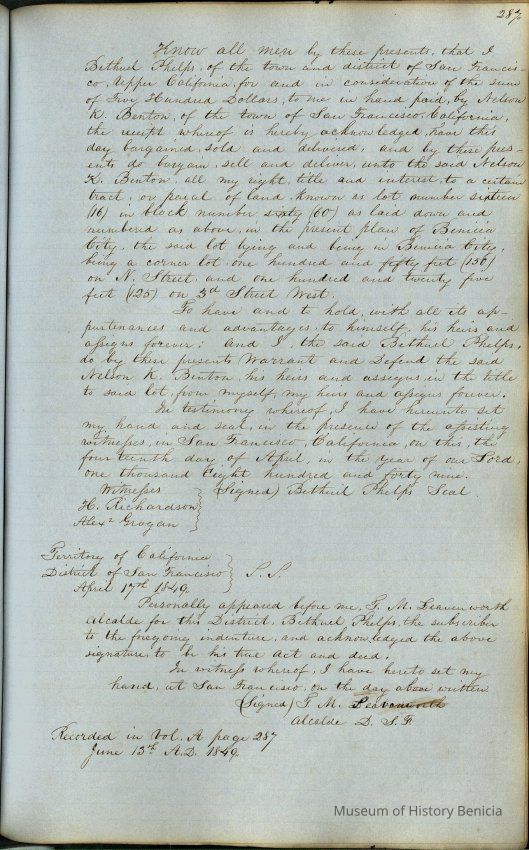 287
Know all men by these presents, that I
Bethuel Phelps, of the town and district of San Francis-
co, Upper California, for and in consideration of the sum
of Five Hundred Dollars, to me in hand paid, by Nelson
K. Benton, of the town of San Francisco, California,
the receipt whereof is hereby acknowledged, have this
day bargained, sold and delivered, and by these pres-
ents do bargain, sell and deliver, unto the said Nelson
K. Benton, all my right, title and interest, to a certain
tract, or parsal of land, known as lot number sixteen
(16) in block number sixty (60) as laid down and
numbered as above, in the present plan of Benicia
City, the said lot lying and being in Benicia City,
being a corner lot, one hundred and fifty feet (150)
on N. Street, and one hundred and twenty five
feet (125) on 3d Street West.
To have and to hold, with all its ap-
purtenances and advantages, to himself, his heirs and
assigns forever; and I, the said Bethuel Phelps,
do by these presents Warrant and Defend the said
Nelson K. Benton, his heirs and assigns, in the title
to said lot, from myself, my heirs and assigns forever.
In testimony whereof, I have hereunto set
my hand and seal, in the presence of the assisting
witnesses, in San Francisco, California, on this, the
fourteenth day of April, in the year of our Lord,
one thousand Eight hundred and forty nine.
Witnesses (Signed) Bethuel Phelps Seal
H. Richardson
Alexr Grogan
Territory of California
District of San Francisco S.S.
April 17th 1849.
Personally appeared before me, T. M. Leavenworth
Alcalde for this District, Bethuel Phelps, the subscriber
to the foregoing indenture, and acknowledged the above
signature, to be his true act and deed.
In witness whereof, I have hereto set my
hand, at San Francisco, on the day above written
(Signed) T. M. Leavenworth
Alcalde D. S. F.
Recorded in Vol. A page 287
June 13th A.D. 1849.
Museum of History Benicia